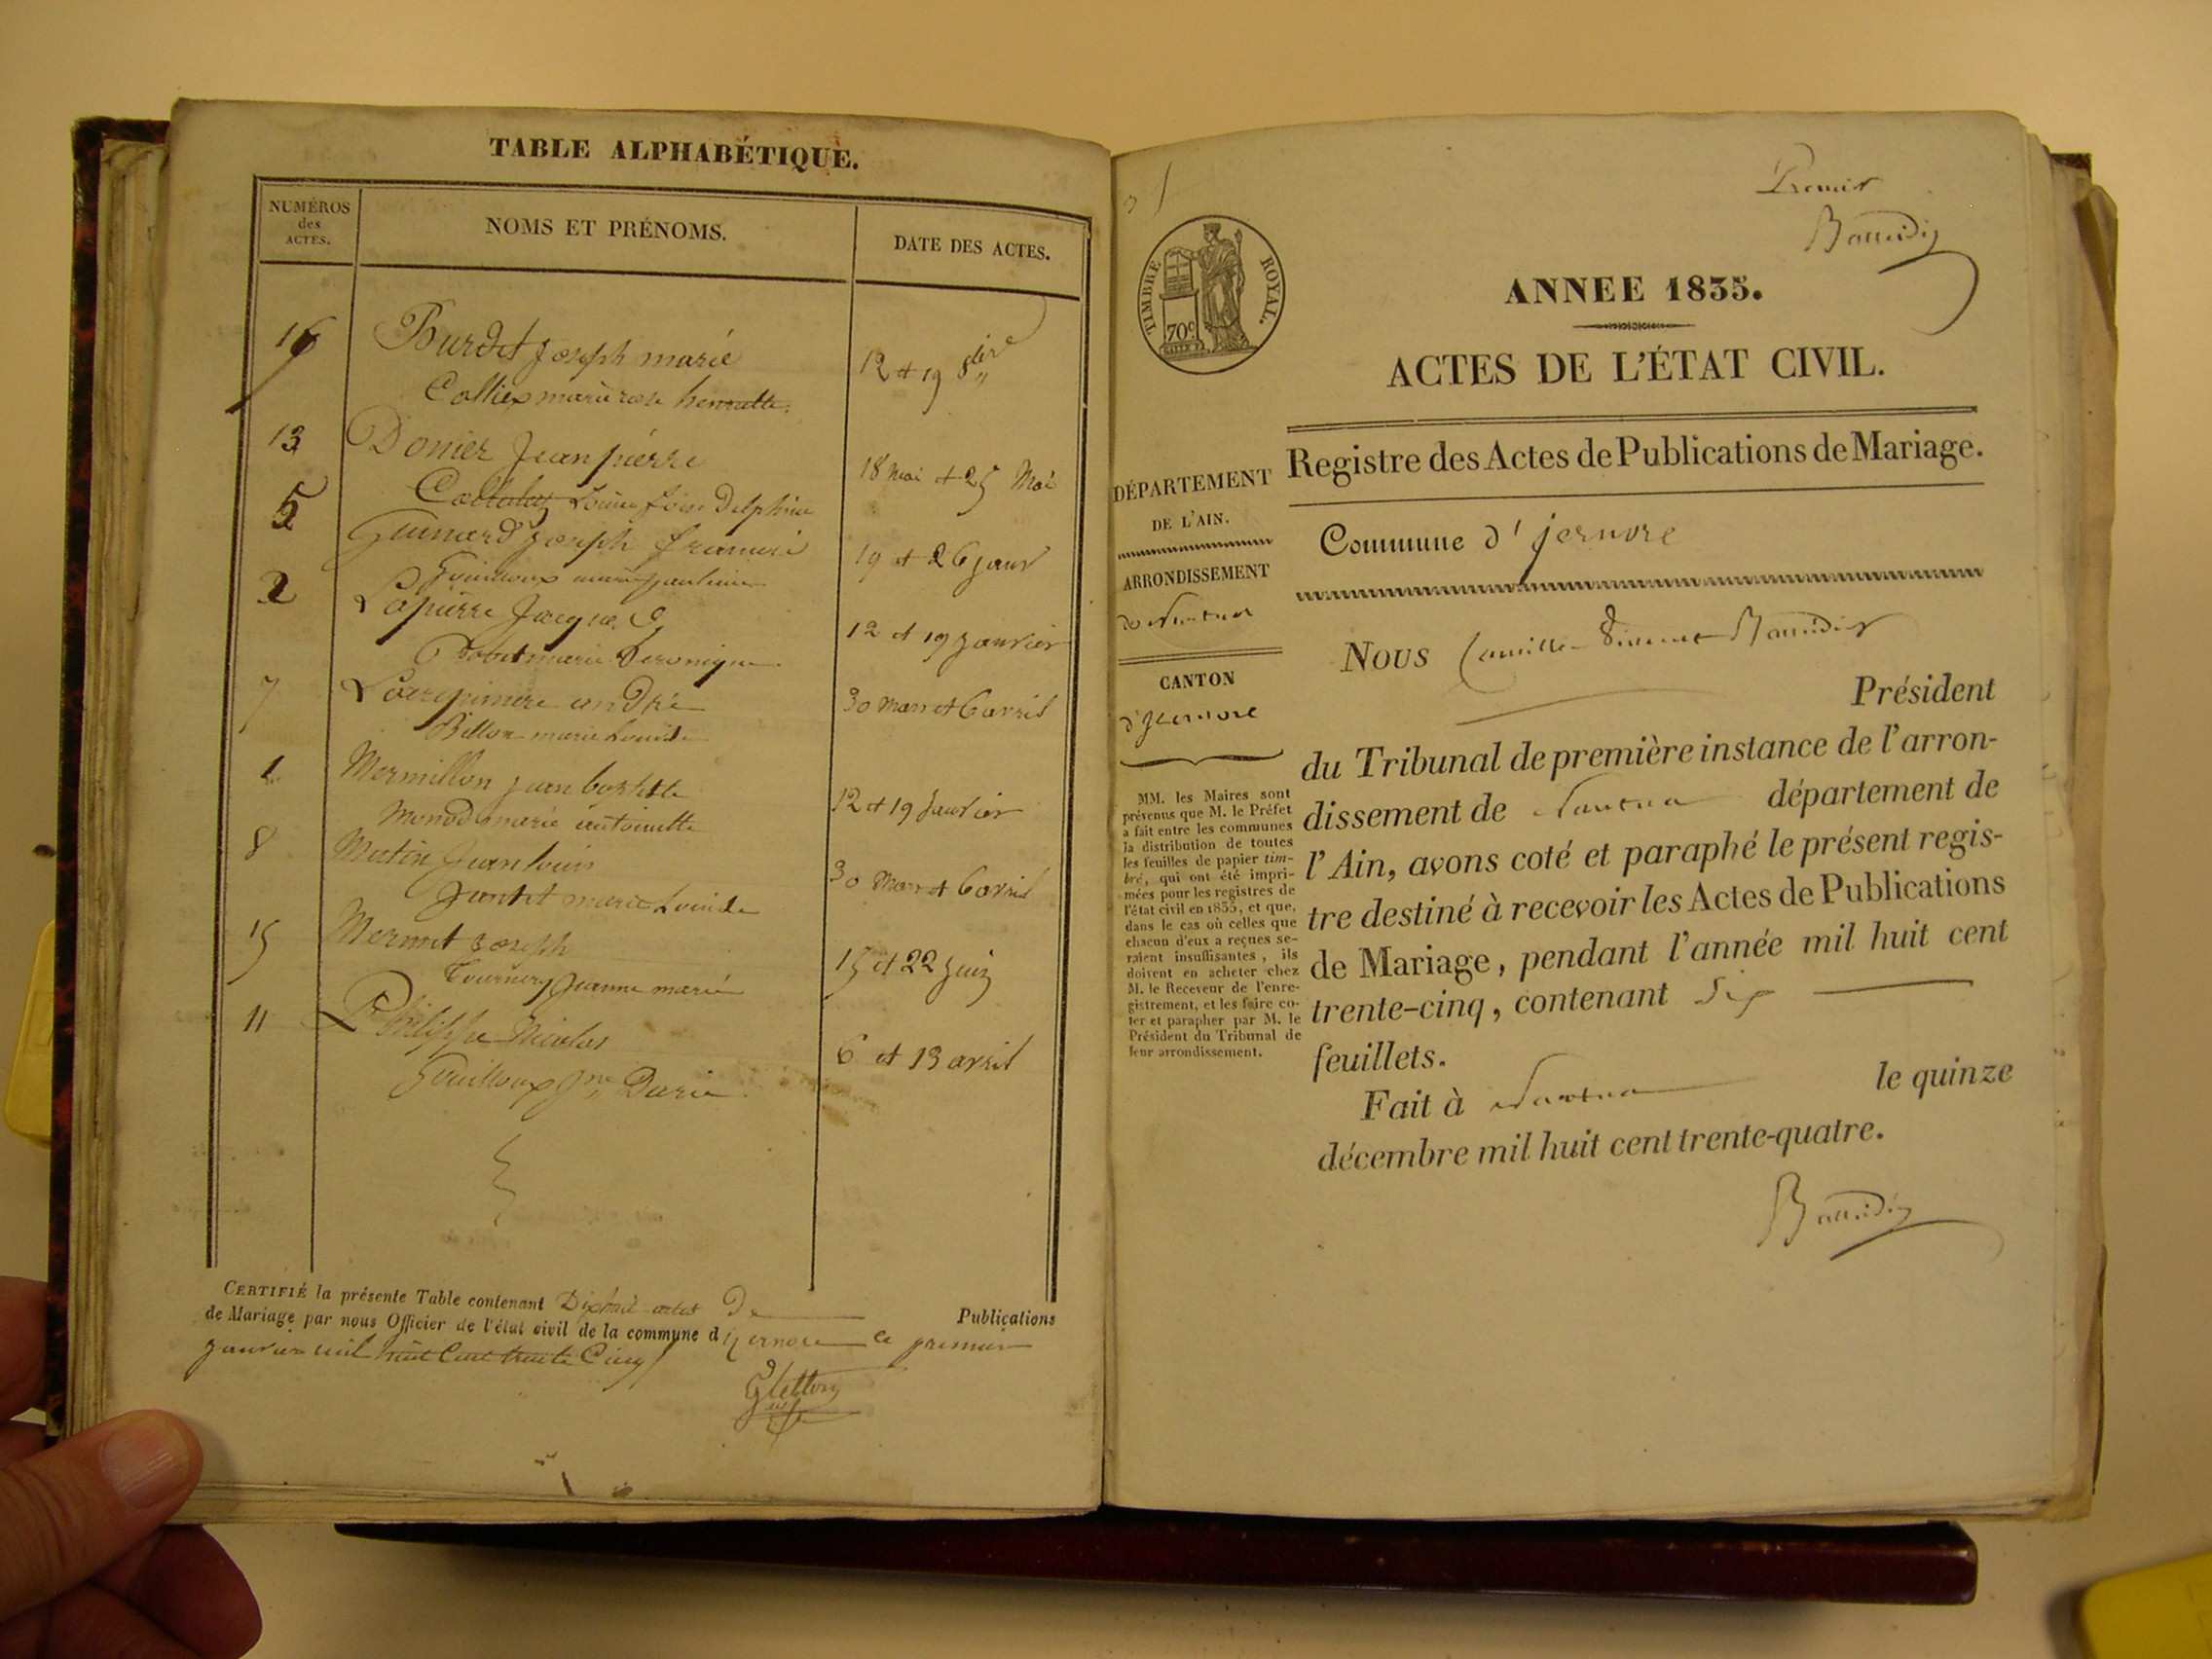 TABLE ALPHABÉTIQUE.
NUMÉROS
des
ACTES.
NOMS ET PRÉNOMS.
DATE DES ACTES.
16 Burdet Joseph marie 12 et 19 8bre
Collier marie rose henriette
13 Donier Jean pierre 18 mai et 25 Mai
Louise Delphine
5 Guinard Joseph 19 et 26 janv
Gouilloux marie
2 Lapierre Jacques 12 et 19 janvier
marie Veronique
7 andré 30 mars et 6 avril
Billon marie Louise
1 Mermillon jean 12 et 19 Janvier
Monod marie antoinette
8 Mutin Jean louis 30 Mars et 6 avril
Jantet marie Louise
15 Mermet Joseph 15 et 22 juin
Jeanne marie
11 Philippe Nicolas 6 et 13 avril
Gouilloux
CERTIFIÉ la présente Table contenant actes De Publications
de Mariage par nous Officier de l'état civil de la commune d'izernore ce premier
janvier mil huit Cent trente Cinq
1
Premier
TIMBRE ROYAL.
70c.
ANNEE 1835.
ACTES DE L'ÉTAT CIVIL.
Registre des Actes de Publications de Mariage.
DÉPARTEMENT
DE L'AIN.
ARRONDISSEMENT
de Nantua
CANTON
d'Izernore
MM. les Maires sont
prévenus que M. le Préfet
a fait entre les communes
la distribution de toutes
les feuilles de papier tim-
bré, qui ont été impri-
mées pour les registres de
l'état civil en 1835, et que,
dans le cas où celles que
chacun d'eux a reçues se-
raient insuffisantes, ils
doivent en acheter chez
M. le Receveur de l'enre-
gistrement, et les faire co-
ter et parapher par M. le
Président du Tribunal de
leur arrondissement.
Commune d'jernore
Nous Camille
Président
du Tribunal de première instance de l'arron-
dissement de Nantua département de
l'Ain, avons coté et paraphé le présent regis-
tre destiné à recevoir les Actes de Publications
de Mariage, pendant l'année mil huit cent
trente-cinq, contenant Six
feuillets.
Fait à Nantua le quinze
décembre mil huit cent trente-quatre.